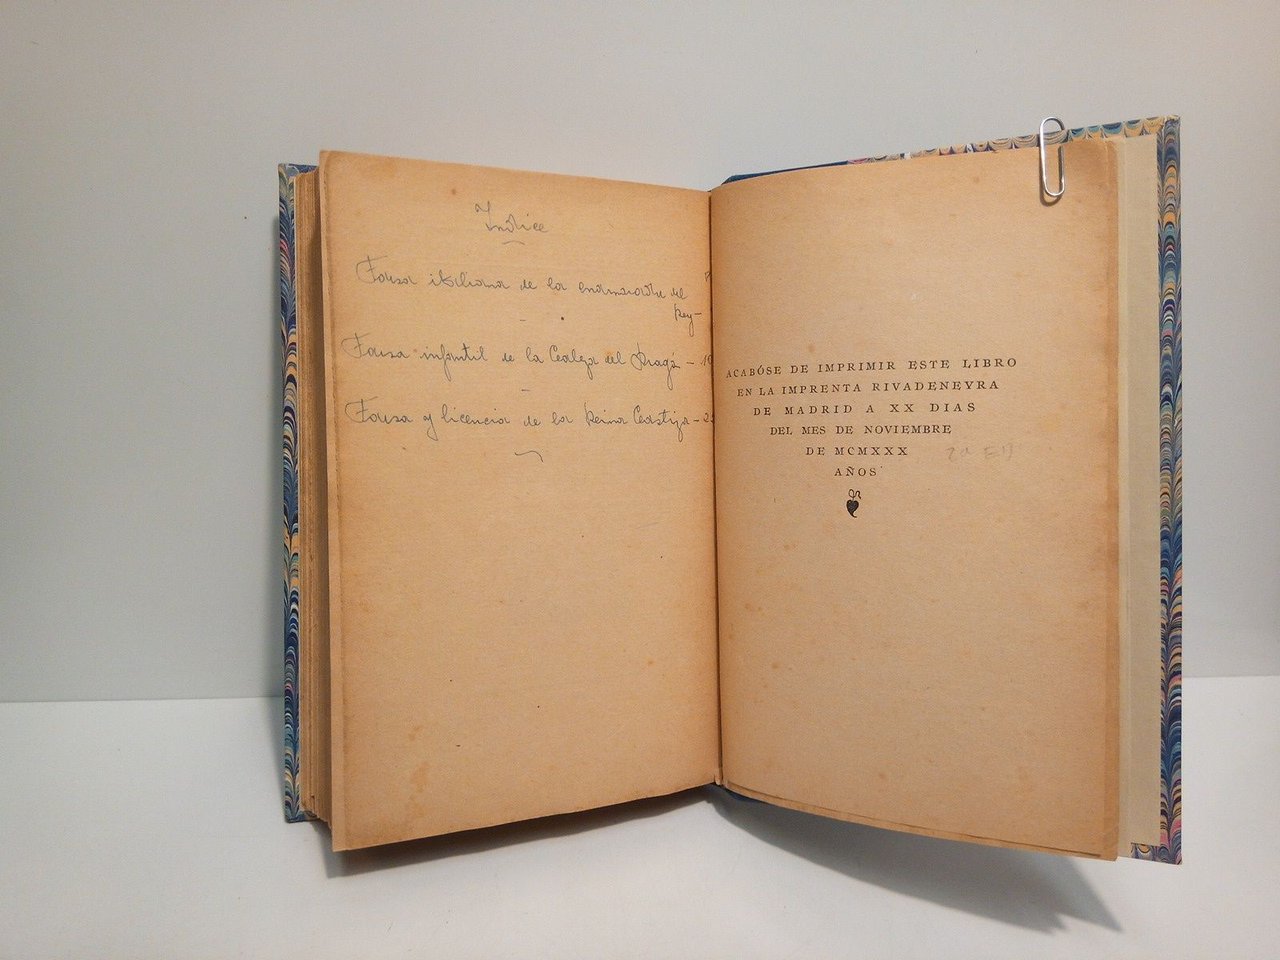 Indice
Farsa italiana de la enamorada del
Rey —
Farsa infantil de la Cabeza del Dragón —
Farsa y licencia de la Reina Castiza —
ACABÓSE DE IMPRIMIR ESTE LIBRO
EN LA IMPRENTA RIVADENEYRA
DE MADRID A XX DIAS
DEL MES DE NOVIEMBRE
DE MCMXXX
AÑOS